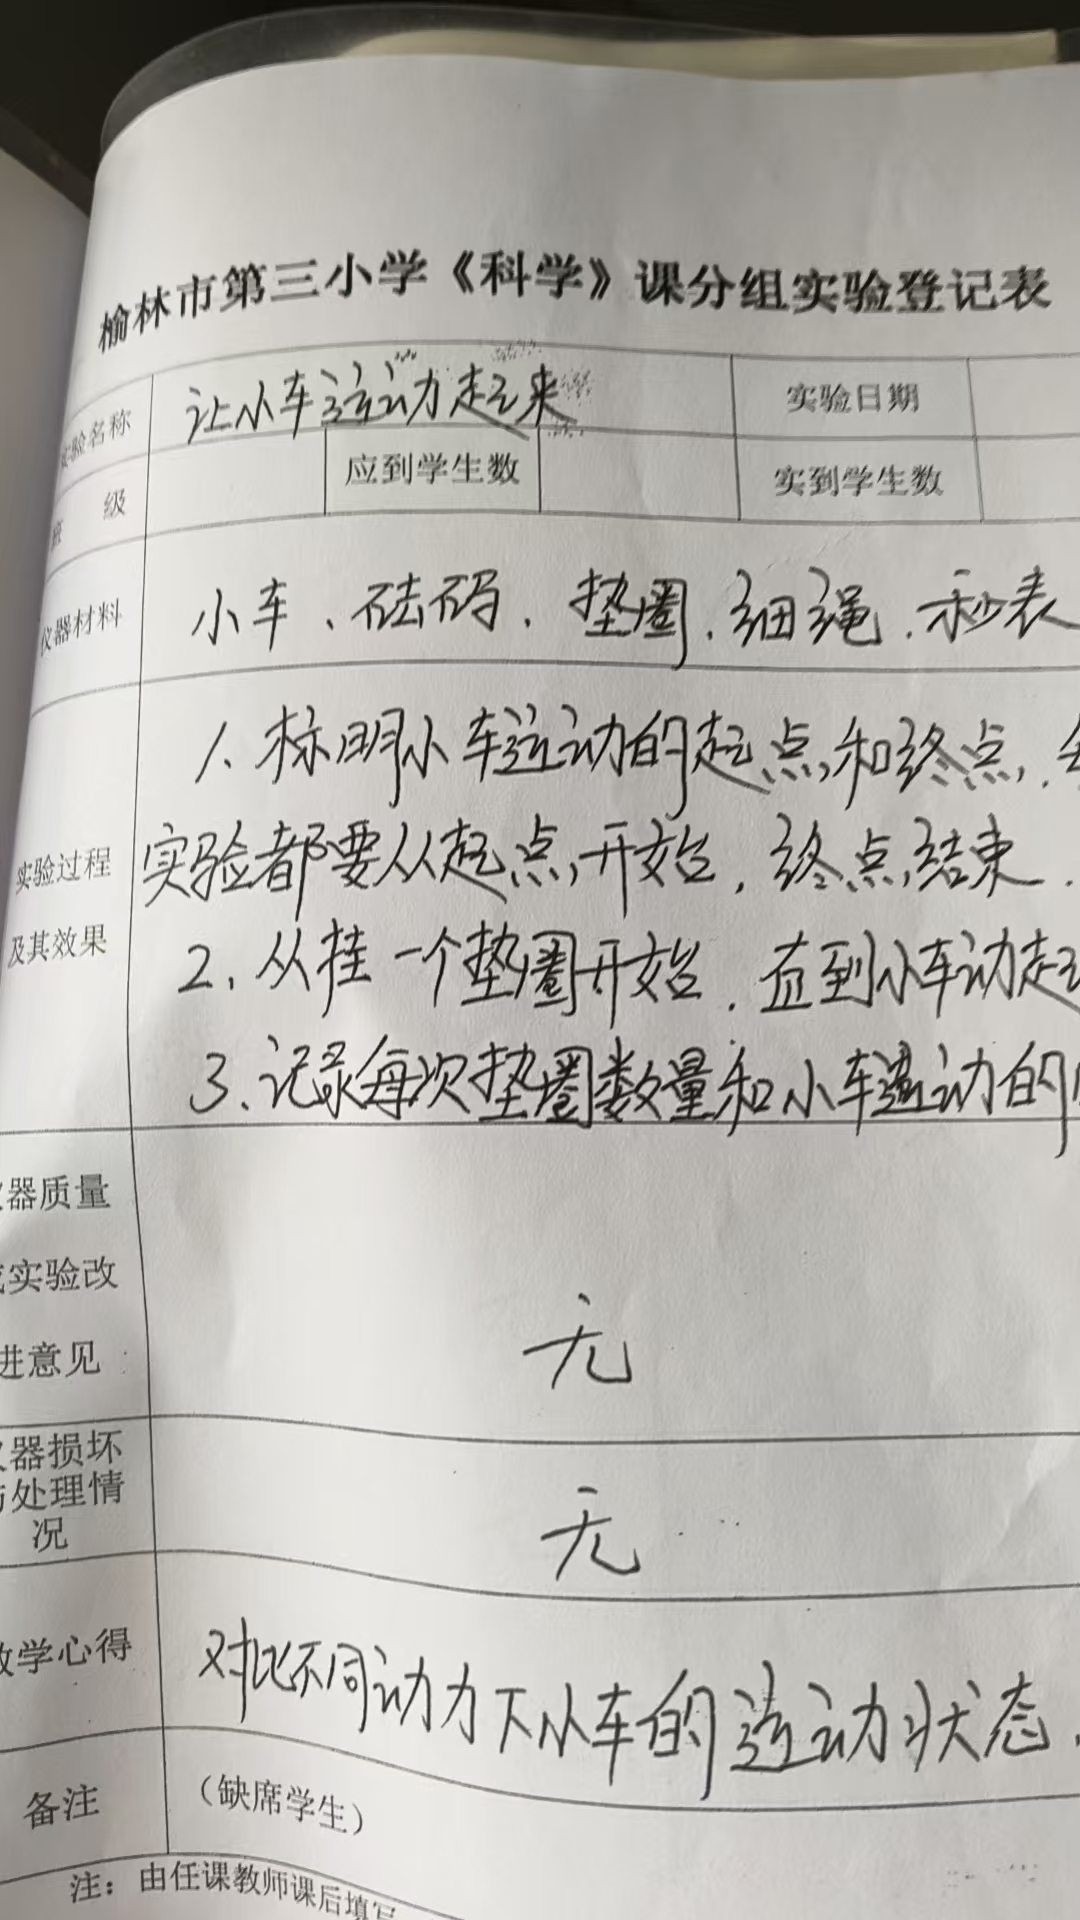 榆林市第三小学《科学》课分组实验登记表
实验名称 让小车运动起来 实验日期
班 级 应到学生数 实到学生数
仪器材料 小车、砝码、垫圈、细绳、秒表
1、标明小车运动的起点和终点,
实验都要从起点开始,终点结束.
2、从挂一个垫圈开始,直到小车动起
3、记录每次垫圈数量和小车运动的
实验过程
及其效果
器质量
实验改
进意见
无
器损坏
处理情
况
无
教学心得 对比不同动力下小车的运动状态.
备注 (缺席学生)
注:由任课教师课后填写